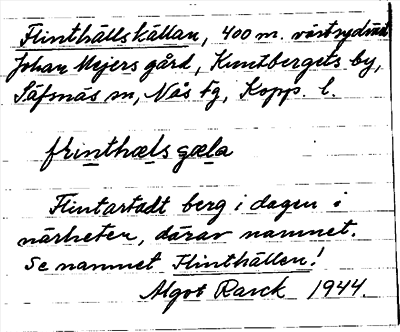 Flinthällskällan, 400 m. västsydväst
Johan Mejers gård, Kuntbergets by,
Säfsnäs sn, Nås fg, Kopp. l.
flinthælsgæla
Flintartadt berg i dagen i
närheten, därav namnet.
Se namnet Flinthällen!
Algot Rarck 1944.